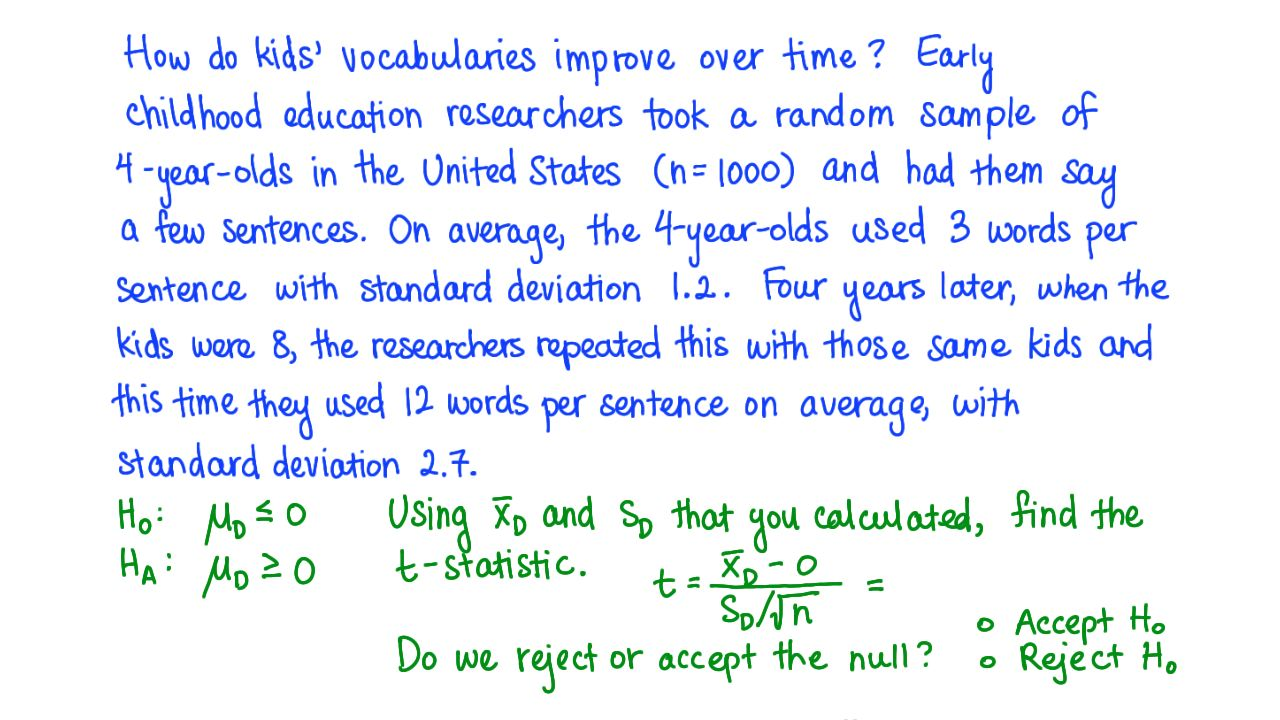 How do kids' vocabularies improve over time? Early
childhood education researchers took a random sample of
4-year-olds in the United States (n=1000) and had them say
a few sentences. On average, the 4-year-olds used 3 words per
sentence with standard deviation 1.2. Four years later, when the
kids were 8, the researchers repeated this with those same kids and
this time they used 12 words per sentence on average, with
standard deviation 2.7.
H₀: μ_D ≤ 0 Using x̄_D and S_D that you calculated, find the
H_A: μ_D ≥ 0 t-statistic. t = (x̄_D - 0) / (S_D/√n) =
Do we reject or accept the null?
○ Accept H₀
○ Reject H₀